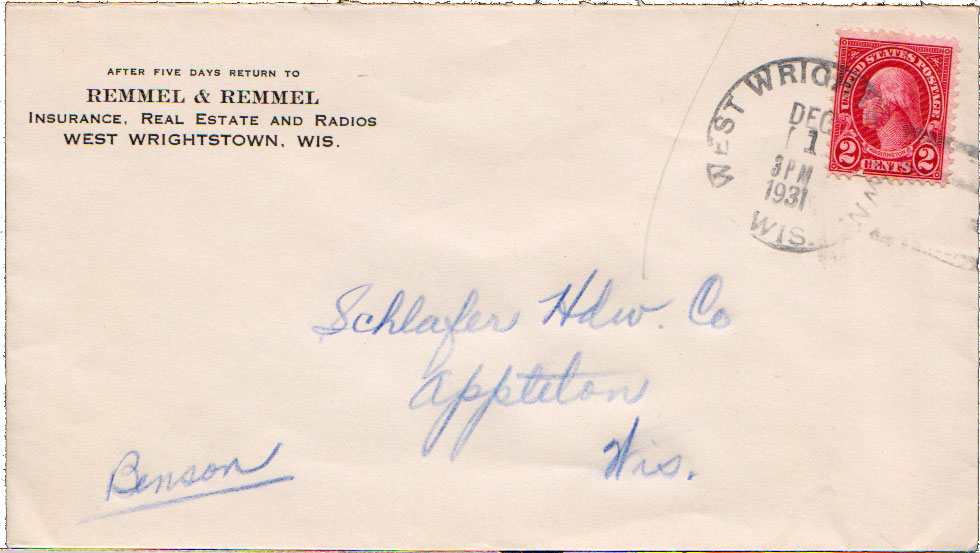 AFTER FIVE DAYS RETURN TO
REMMEL & REMMEL
INSURANCE, REAL ESTATE AND RADIOS
WEST WRIGHTSTOWN, WIS.
WEST WRIGH
DEC
1
3 PM
1931
WIS.
UNITED STATES POSTAGE
WASHINGTON
2 CENTS 2
Schlafer Hdw. Co
Appleton
Wis.
Benson